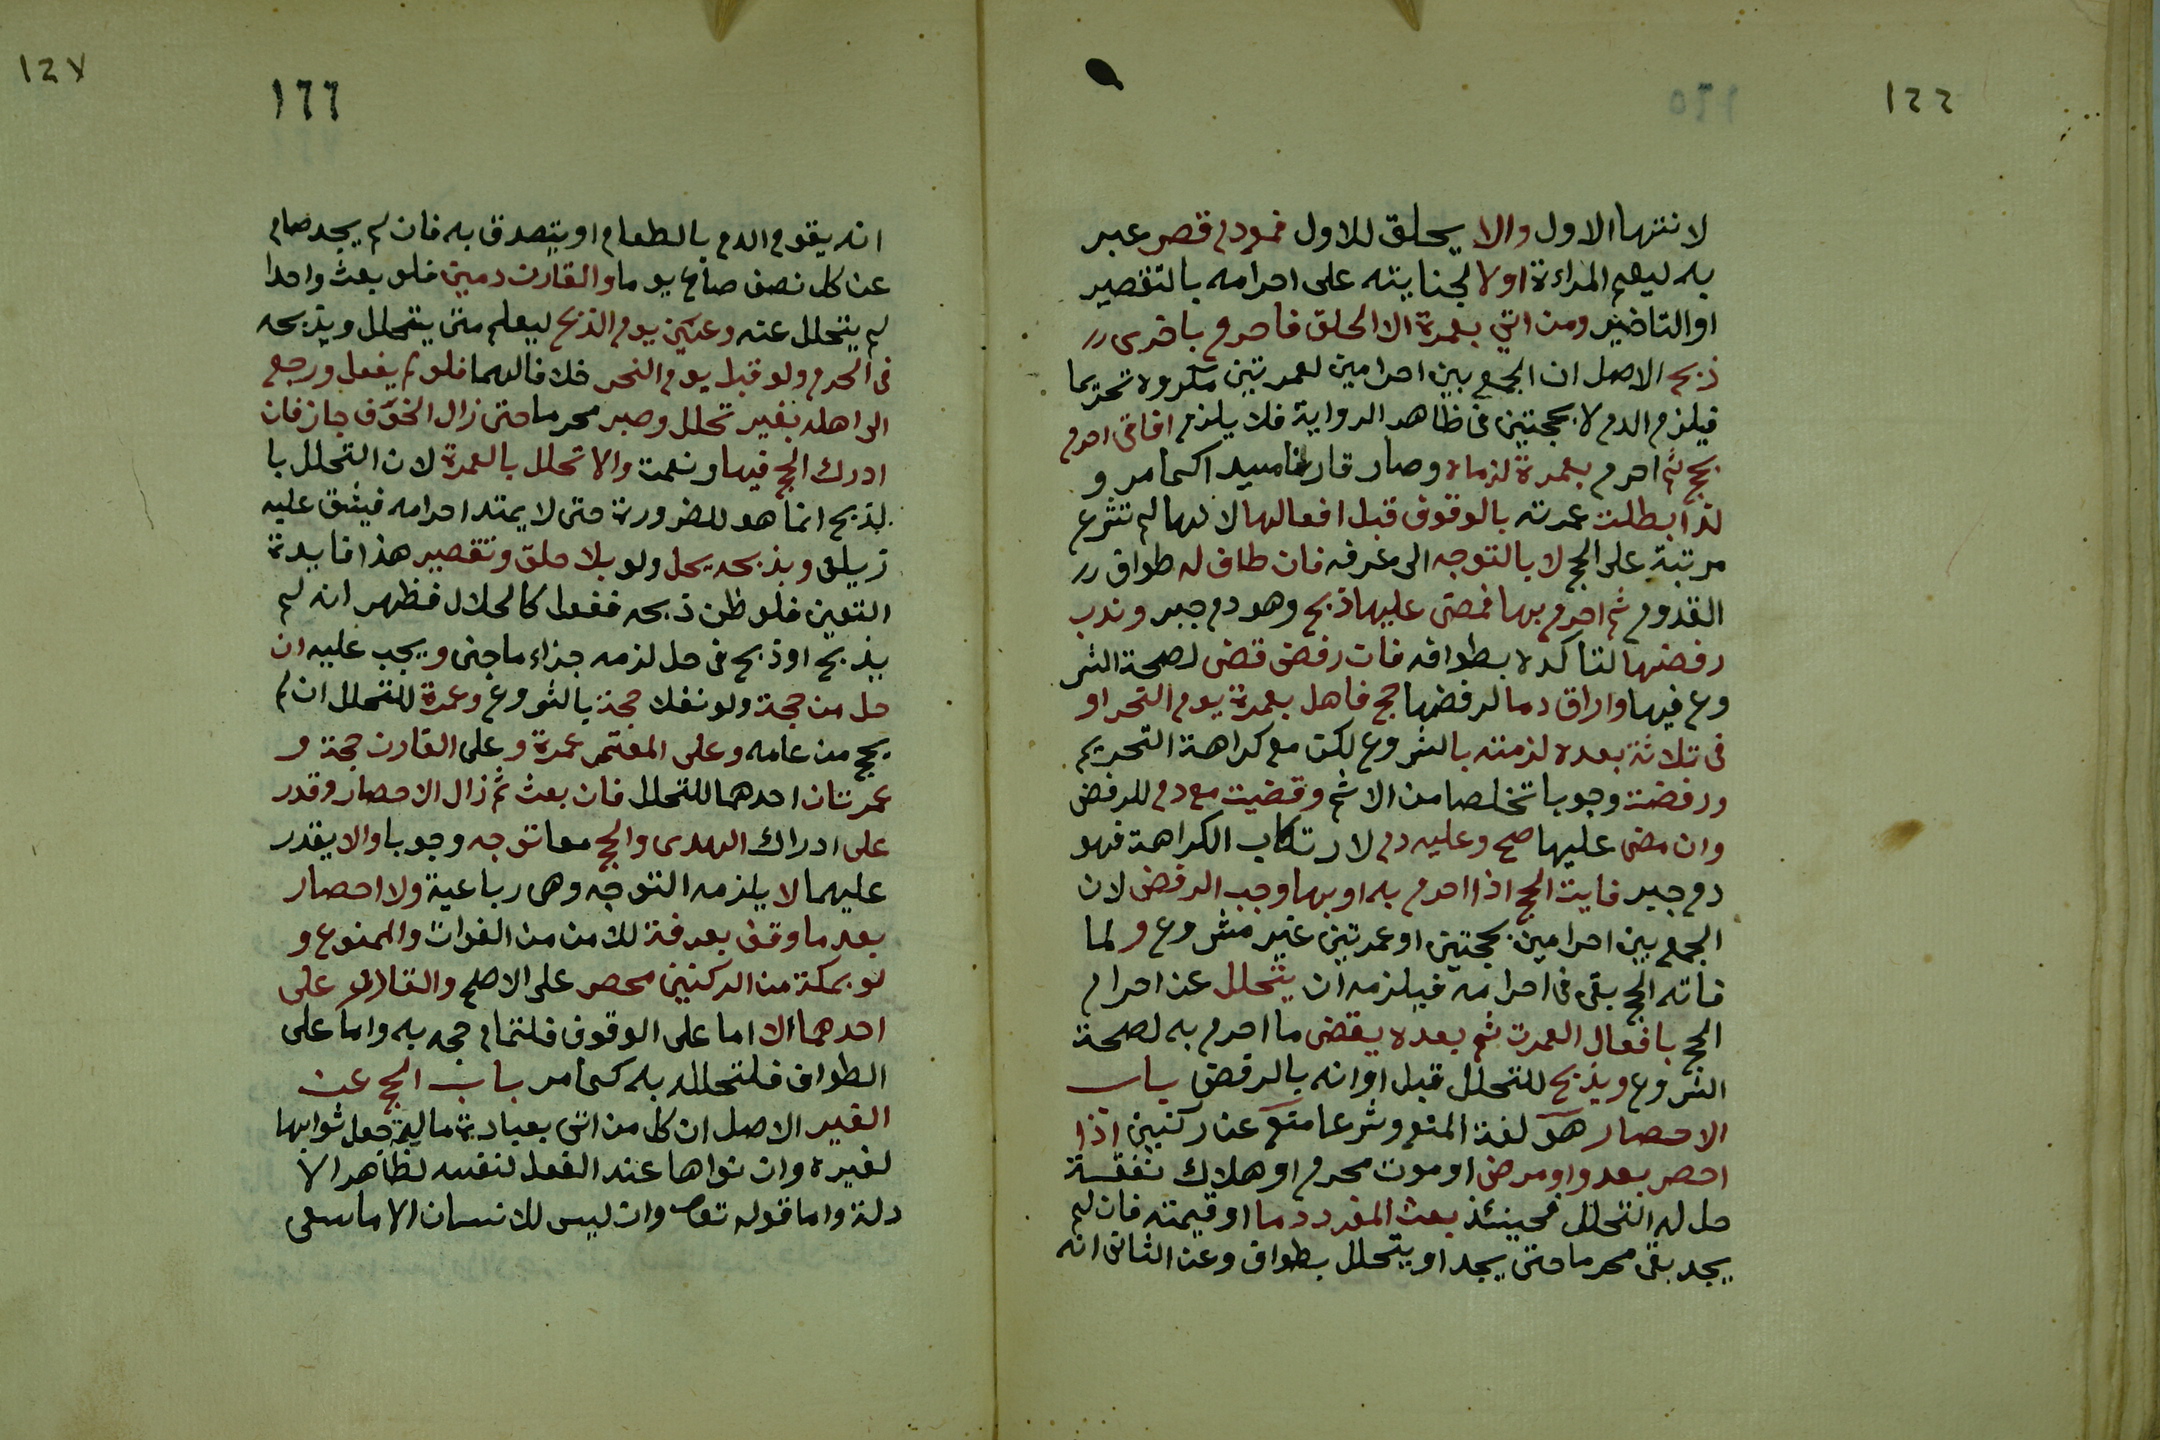 ١٤٤
١٦٥
لانتهاالاول والا يحلق للاول فمودم قصر عبر
به ليعم المراءة اولا لجنايته على احرامه بالتقصير
اوالتاخير ومن اتي بعمرة الا الحلق فاحرم باخرى
ذبح الاصل ان الجمع بين احرامين لعمرتين مكروه تحريما
فيلزم الدم لا بحجتين فى ظاهر الرواية فلا يلزم افاقى احرم
بحج ثم احرم بعمرة لزماه وصار قارنا مسيد اكمامر و
لذا بطلت عمرته بالوقوف قبل افعالها لانها لم تشرع
مرتبة على الحج لا بالتوجه الى عرفه فان طاف له طواف
القدوم ثم احرم بها فمضى عليها ذبح وهو دم جبر وندب
رفضها لتاكده بطوافه فان رفض قضى لصحة الشر
وع فيها واراق دما لرفضها حج فاهل بعمرة يوم النحر او
فى ثلاثة بعده لزمته بالشروع لكن مع كراهة التحريم
ورفضت وجوبا تخلصا من الاثم وقضيت مع دم للرفض
وان مضى عليها صح وعليه دم لارتكاب الكراهة فهو
دم جبر فايت الحج اذا احرم به او بها وجب الرفض لان
الجمع بين احرامين بحجتين او عمرتين غير مشروع و لما
فاته الحج بقى فى احرامه فيلزمه ان يتحلل عن احرام
الحج بافعال العمرت ثم بعده يقضى ما احرم به لصحة
الشروع ويذبح للتحلل قبل اوانه بالرفض باب
الاحصار هو لغة المنع وشرعا منع عن ركنين اذا
احصر بعدو او مرض او موت محرم او هلاك نفقة
حل له التحلل فحينئذ بعث المفرد دما او قيمته فان لم
يجد بقى محرما حتى يجد او يتحلل بطواف وعن الثانى انه
١٤٧
١٦٦
انه يقوم الدم بالطعام او يتصدق به فان لم يجد صام
عن كل نصف صاع يوما والقارن دمين فلو بعث واحدا
لم يتحلل عنه وعين يوم الذبح ليعلم متى يتحلل ويذبحه
فى الحرم ولو قبل يوم النحر خلافا لهما فلو لم يفعل ورجع
الى اهله بغير تحلل وصبر محرما حتى زال الخوف جاز فان
ادرك الحج فبها ونعمت والا تحلل بالعمرة لان التحلل با
لذبح انما هو للضرورة حتى لا يمتد احرامه فيشق عليه
زيلعى وبذبحه يحل ولو بلا حلق وتقصير هذا فايدة
التعين فلو ظن ذبحه ففعل كالحلال فظهر انه لم
يذبح او ذبح فى حل لزمه جزاء ما جنى ويجب عليه ان
حل من حجة ولو نفلا حجة بالشروع وعمرة للتحلل ان لم
يحج من عامه وعلى المعتمر عمرة وعلى القارن حجة و
عمرتان احدهما للتحلل فان بعث ثم زال الاحصار وقدر
على ادراك الهدى والحج معا توجه وجوبا والا يقدر
عليهما لا يلزمه التوجه وهى رباعية ولا احصار
بعد ما وقف بعرفة للامن من الفوات والممنوع و
لو بمكة من الركنين محصر على الاصح والقادر على
احدهما لا اما على الوقوف فلتمام حجه به واما على
الطواف فلتحلله به كمامر باب الحج عن
الغير الاصل ان كل من اتى بعبادة ما ليه جعل ثوابها
لغيره وان نواها عند الفعل لنفسه لظاهر الا
دلة واما قوله تعا وان ليس للانسان الا ما سعى